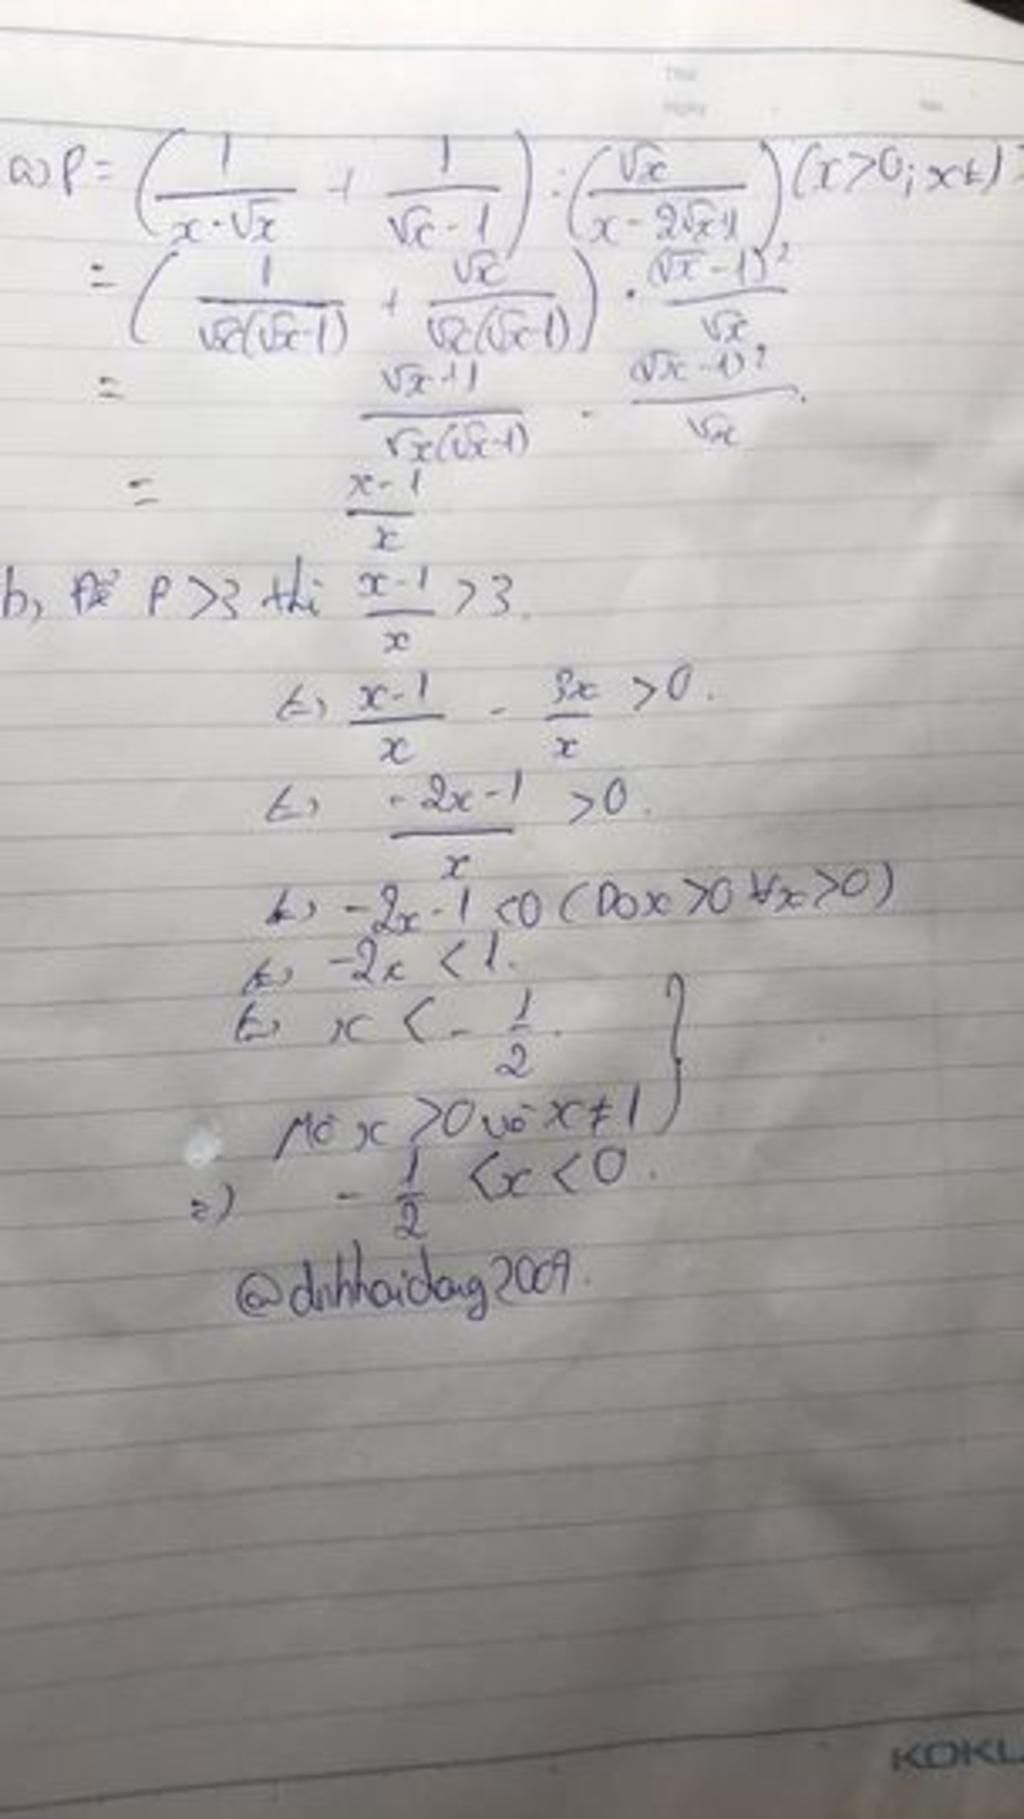 a) P = (1/(x-√x) + 1/(√x-1)) : (√x/(x-2√x+1)) (x>0; x≠1)
= (1/(√x(√x-1)) + √x/(√x(√x-1))) . (√x-1)²/√x
= (√x+1)/(√x(√x-1)) . (√x-1)²/√x.
= (x-1)/x
b, Để P >3 thì (x-1)/x >3.
⇔ (x-1)/x - 3x/x >0.
⇔ (-2x-1)/x >0.
⇔ -2x-1 <0 (Do x>0 ∀x>0)
⇔ -2x < 1.
⇔ x < -1/2. }
Mà x >0 và x≠1
=> -1/2 <x < 0.
@dnhhaidang2009.
KOKU